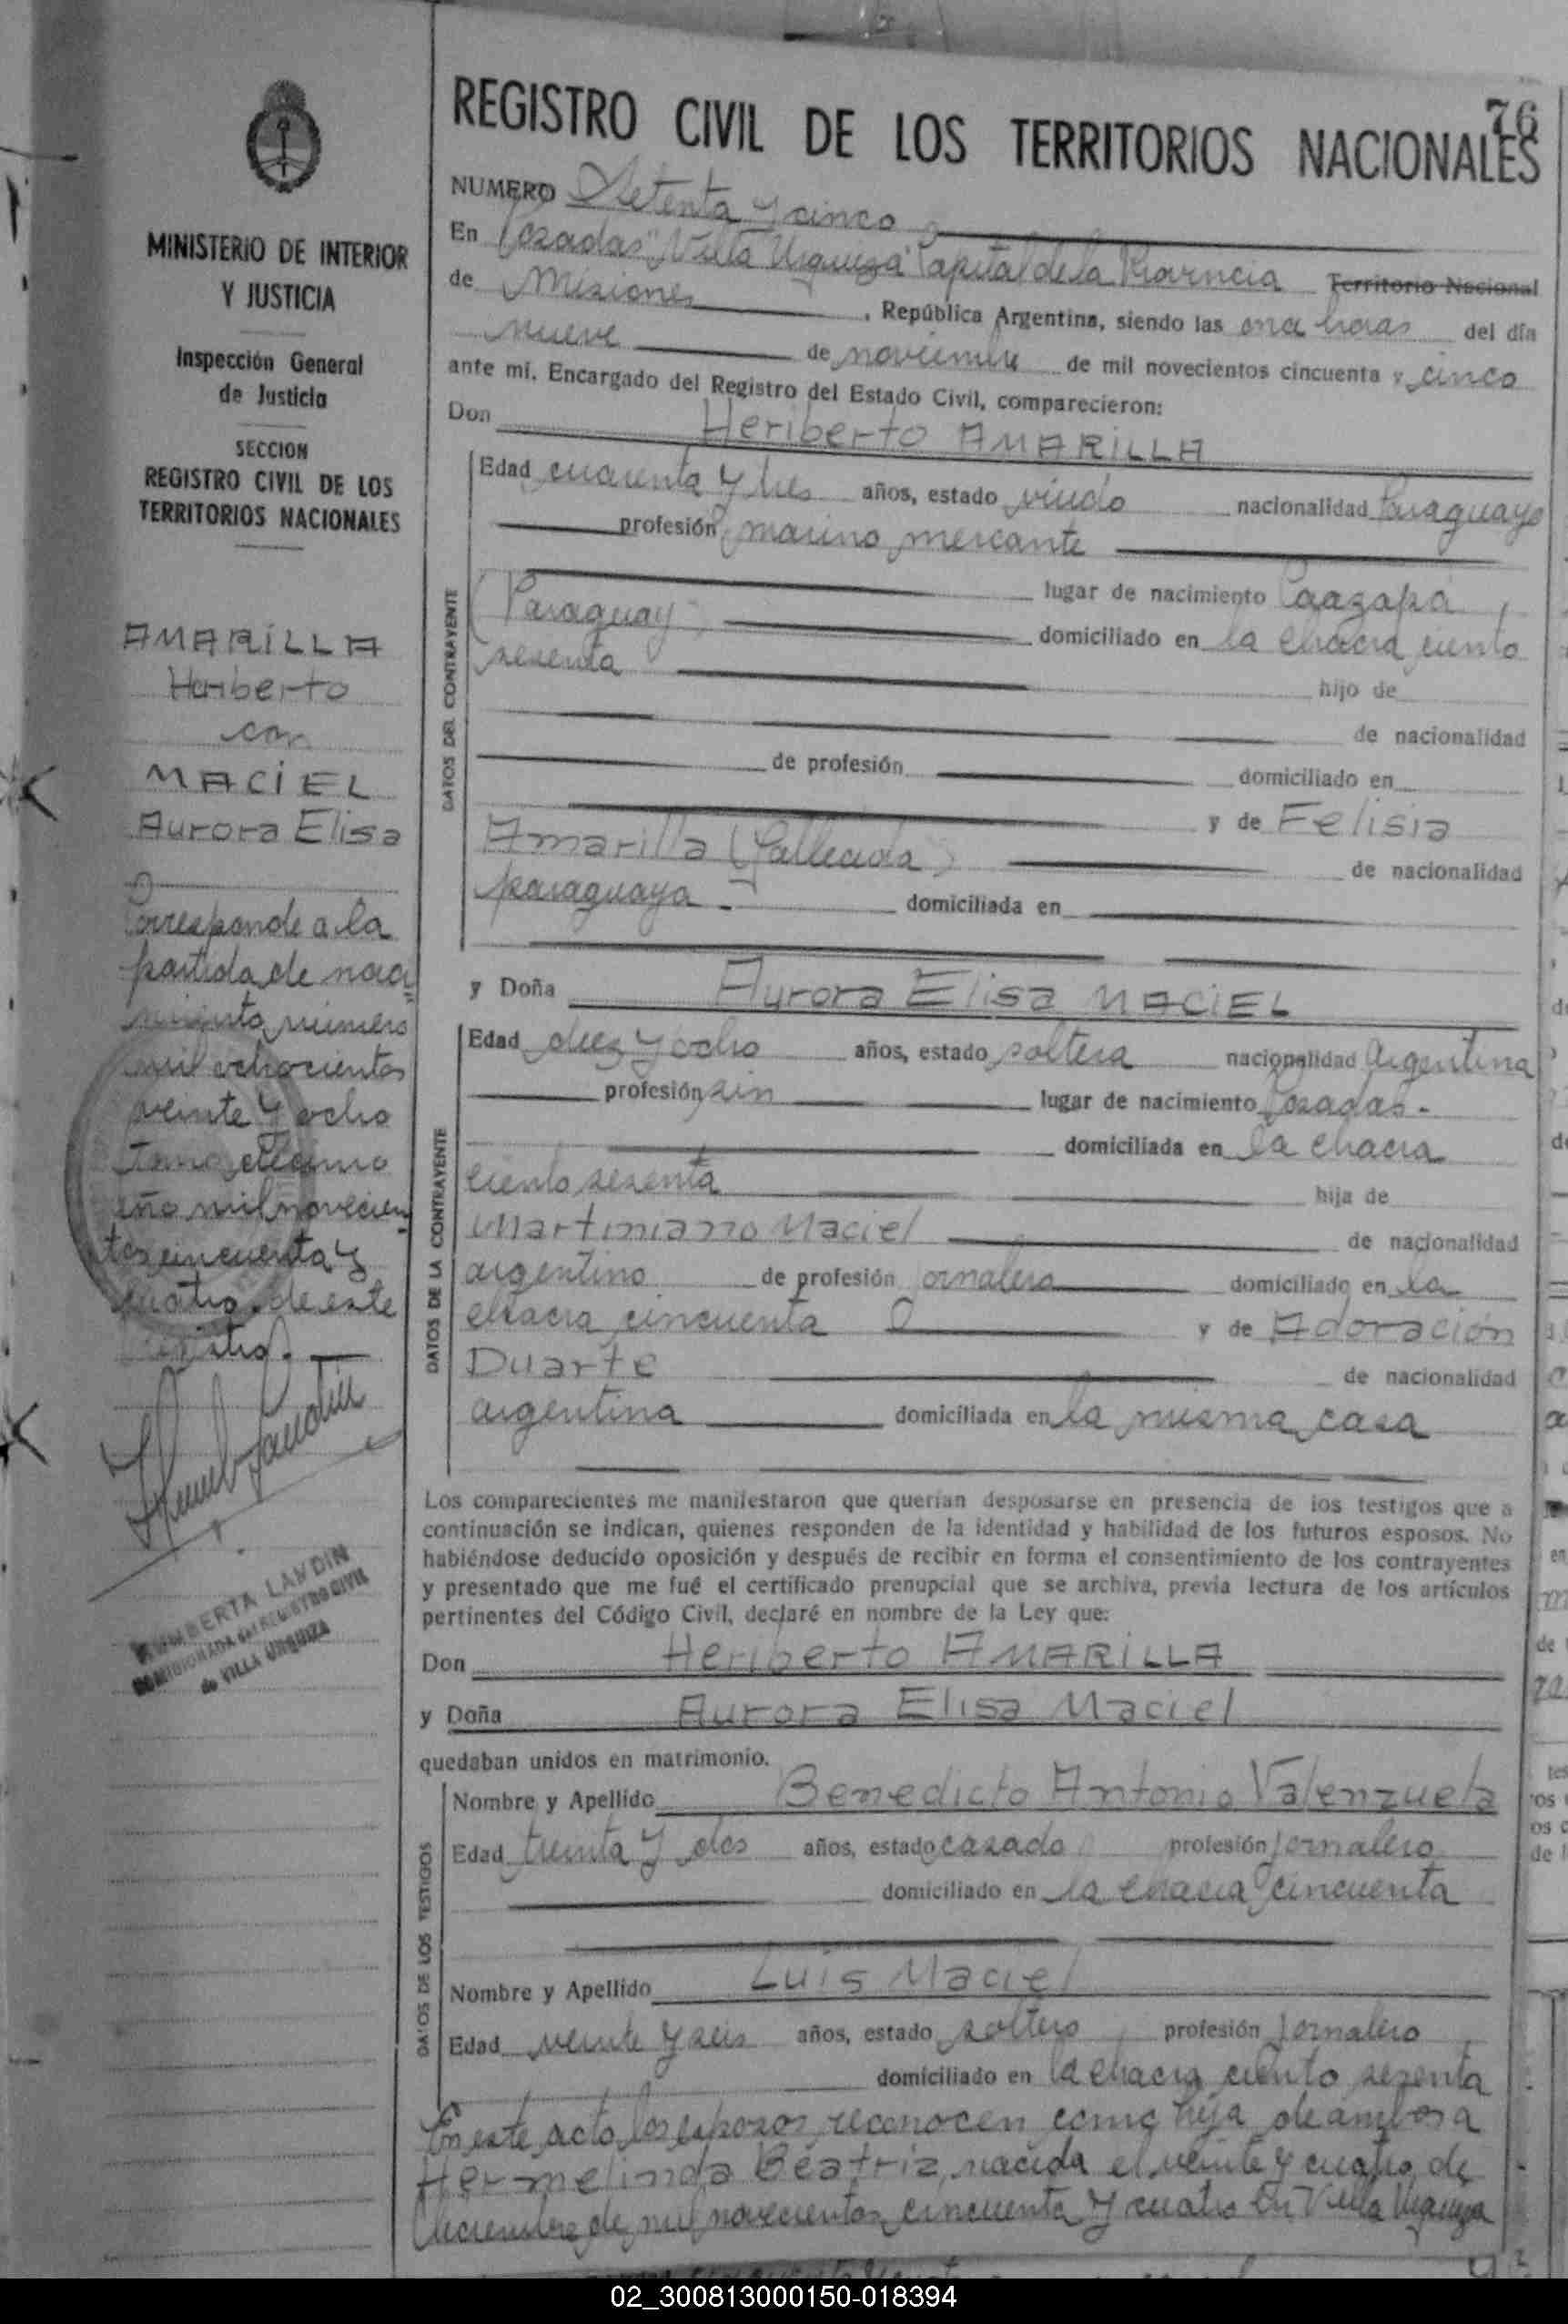 76
REGISTRO CIVIL DE LOS TERRITORIOS NACIONALES
MINISTERIO DE INTERIOR
Y JUSTICIA
Inspección General
de Justicia
SECCION
REGISTRO CIVIL DE LOS
TERRITORIOS NACIONALES
AMARILLA
Heriberto
con
MACIEL
Aurora Elisa
Corresponde a la
partida de naci
miento número
mil ochocientos
veinte y ocho
Tomo décimo
año mil novecien
tos cincuenta y
cuatro de este
LANDIN
COMISIONADA del REGISTRO CIVIL
de VILLA URQUIZA
NUMERO Setenta y cinco
En Posadas "Villa Urquiza" Capital de la Provincia Territorio Nacional
de Misiones, República Argentina, siendo las once horas del día
nueve de noviembre de mil novecientos cincuenta y cinco
ante mí, Encargado del Registro del Estado Civil, comparecieron:
Don Heriberto AMARILLA
DATOS DEL CONTRAYENTE
Edad cuarenta y tres años, estado viudo nacionalidad Paraguayo
profesión marino mercante
lugar de nacimiento Caazapá,
(Paraguay) domiciliado en la chacra ciento
sesenta hijo de
de nacionalidad
de profesión domiciliado en
y de Felisia
Amarilla (fallecida) de nacionalidad
paraguaya.- domiciliada en
y Doña Aurora Elisa MACIEL
DATOS DE LA CONTRAYENTE
Edad diez y ocho años, estado soltera nacionalidad Argentina
profesión sin lugar de nacimiento Posadas.-
domiciliada en la chacra
ciento sesenta hija de
Martiniano Maciel de nacionalidad
argentino de profesión jornalero domiciliado en la
chacra cincuenta y de Adoración
Duarte de nacionalidad
argentina domiciliada en la misma casa
Los comparecientes me manifestaron que querían desposarse en presencia de los testigos que a
continuación se indican, quienes responden de la identidad y habilidad de los futuros esposos. No
habiéndose deducido oposición y después de recibir en forma el consentimiento de los contrayentes
y presentado que me fué el certificado prenupcial que se archiva, previa lectura de los artículos
pertinentes del Código Civil, declaré en nombre de la Ley que:
Don Heriberto AMARILLA
y Doña Aurora Elisa Maciel
quedaban unidos en matrimonio.
DATOS DE LOS TESTIGOS
Nombre y Apellido Benedicto Antonio Valenzuela
Edad treinta y dos años, estado casado profesión jornalero
domiciliado en la chacra cincuenta
Nombre y Apellido Luis Maciel
Edad veinte y seis años, estado soltero, profesión jornalero
domiciliado en la chacra ciento sesenta
En este acto los esposos reconocen como hija de ambos a
Hermelinda Beatriz, nacida el veinte y cuatro de
Diciembre de mil novecientos cincuenta y cuatro en Villa Urquiza
02_300813000150-018394